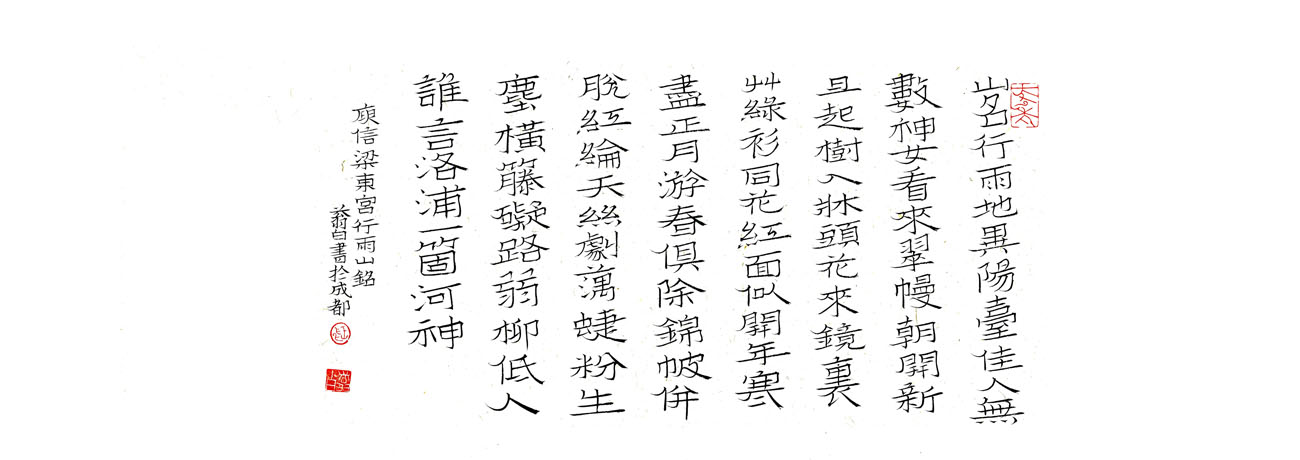 山名行雨地異陽臺佳人無
數神女看來翠幔朝開新
旦起樹入牀頭花來鏡裏
艸綠衫同花紅面似開年寒
盡正月游春俱除錦帔併
脫紅綸天絲劇藕蝶粉生
塵橫籐礙路弱柳低人
誰言洛浦一箇河神
庾信梁東宮行雨山銘
翁白書於成都